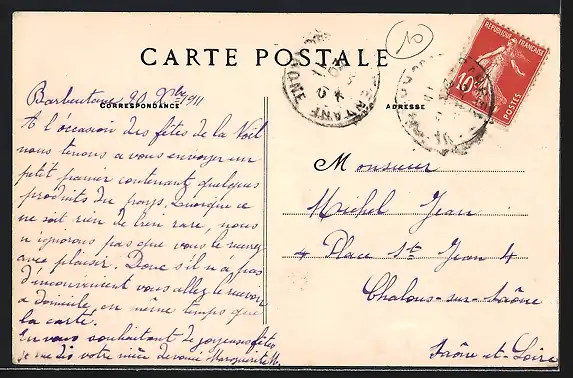 CARTE POSTALE
10
RÉPUBLIQUE FRANÇAISE
10
POSTES
CORRESPONDANCE
ADRESSE
Barbentane 20 Xbre 1911
A l'occasion des fêtes de la Noël
nous tenons a vous envoyer un
petit panier contenant quelques
produits du pays. Quoique ce
ne soit rien de bien rare, nous
n'ignorons pas que vous le recevrez
avec plaisir. Donc s'il n'a pas
d'inconvenient vous allez le recevoir
a domicile en même temps que
la carte.
En vous souhaitant de joyeuses fêtes
je me dis votre nièce dévouée Marguerite M.
Monsieur
Michel Jean
4 Place St Jean 4
Chalons-sur-Saône
Saône-et-Loire